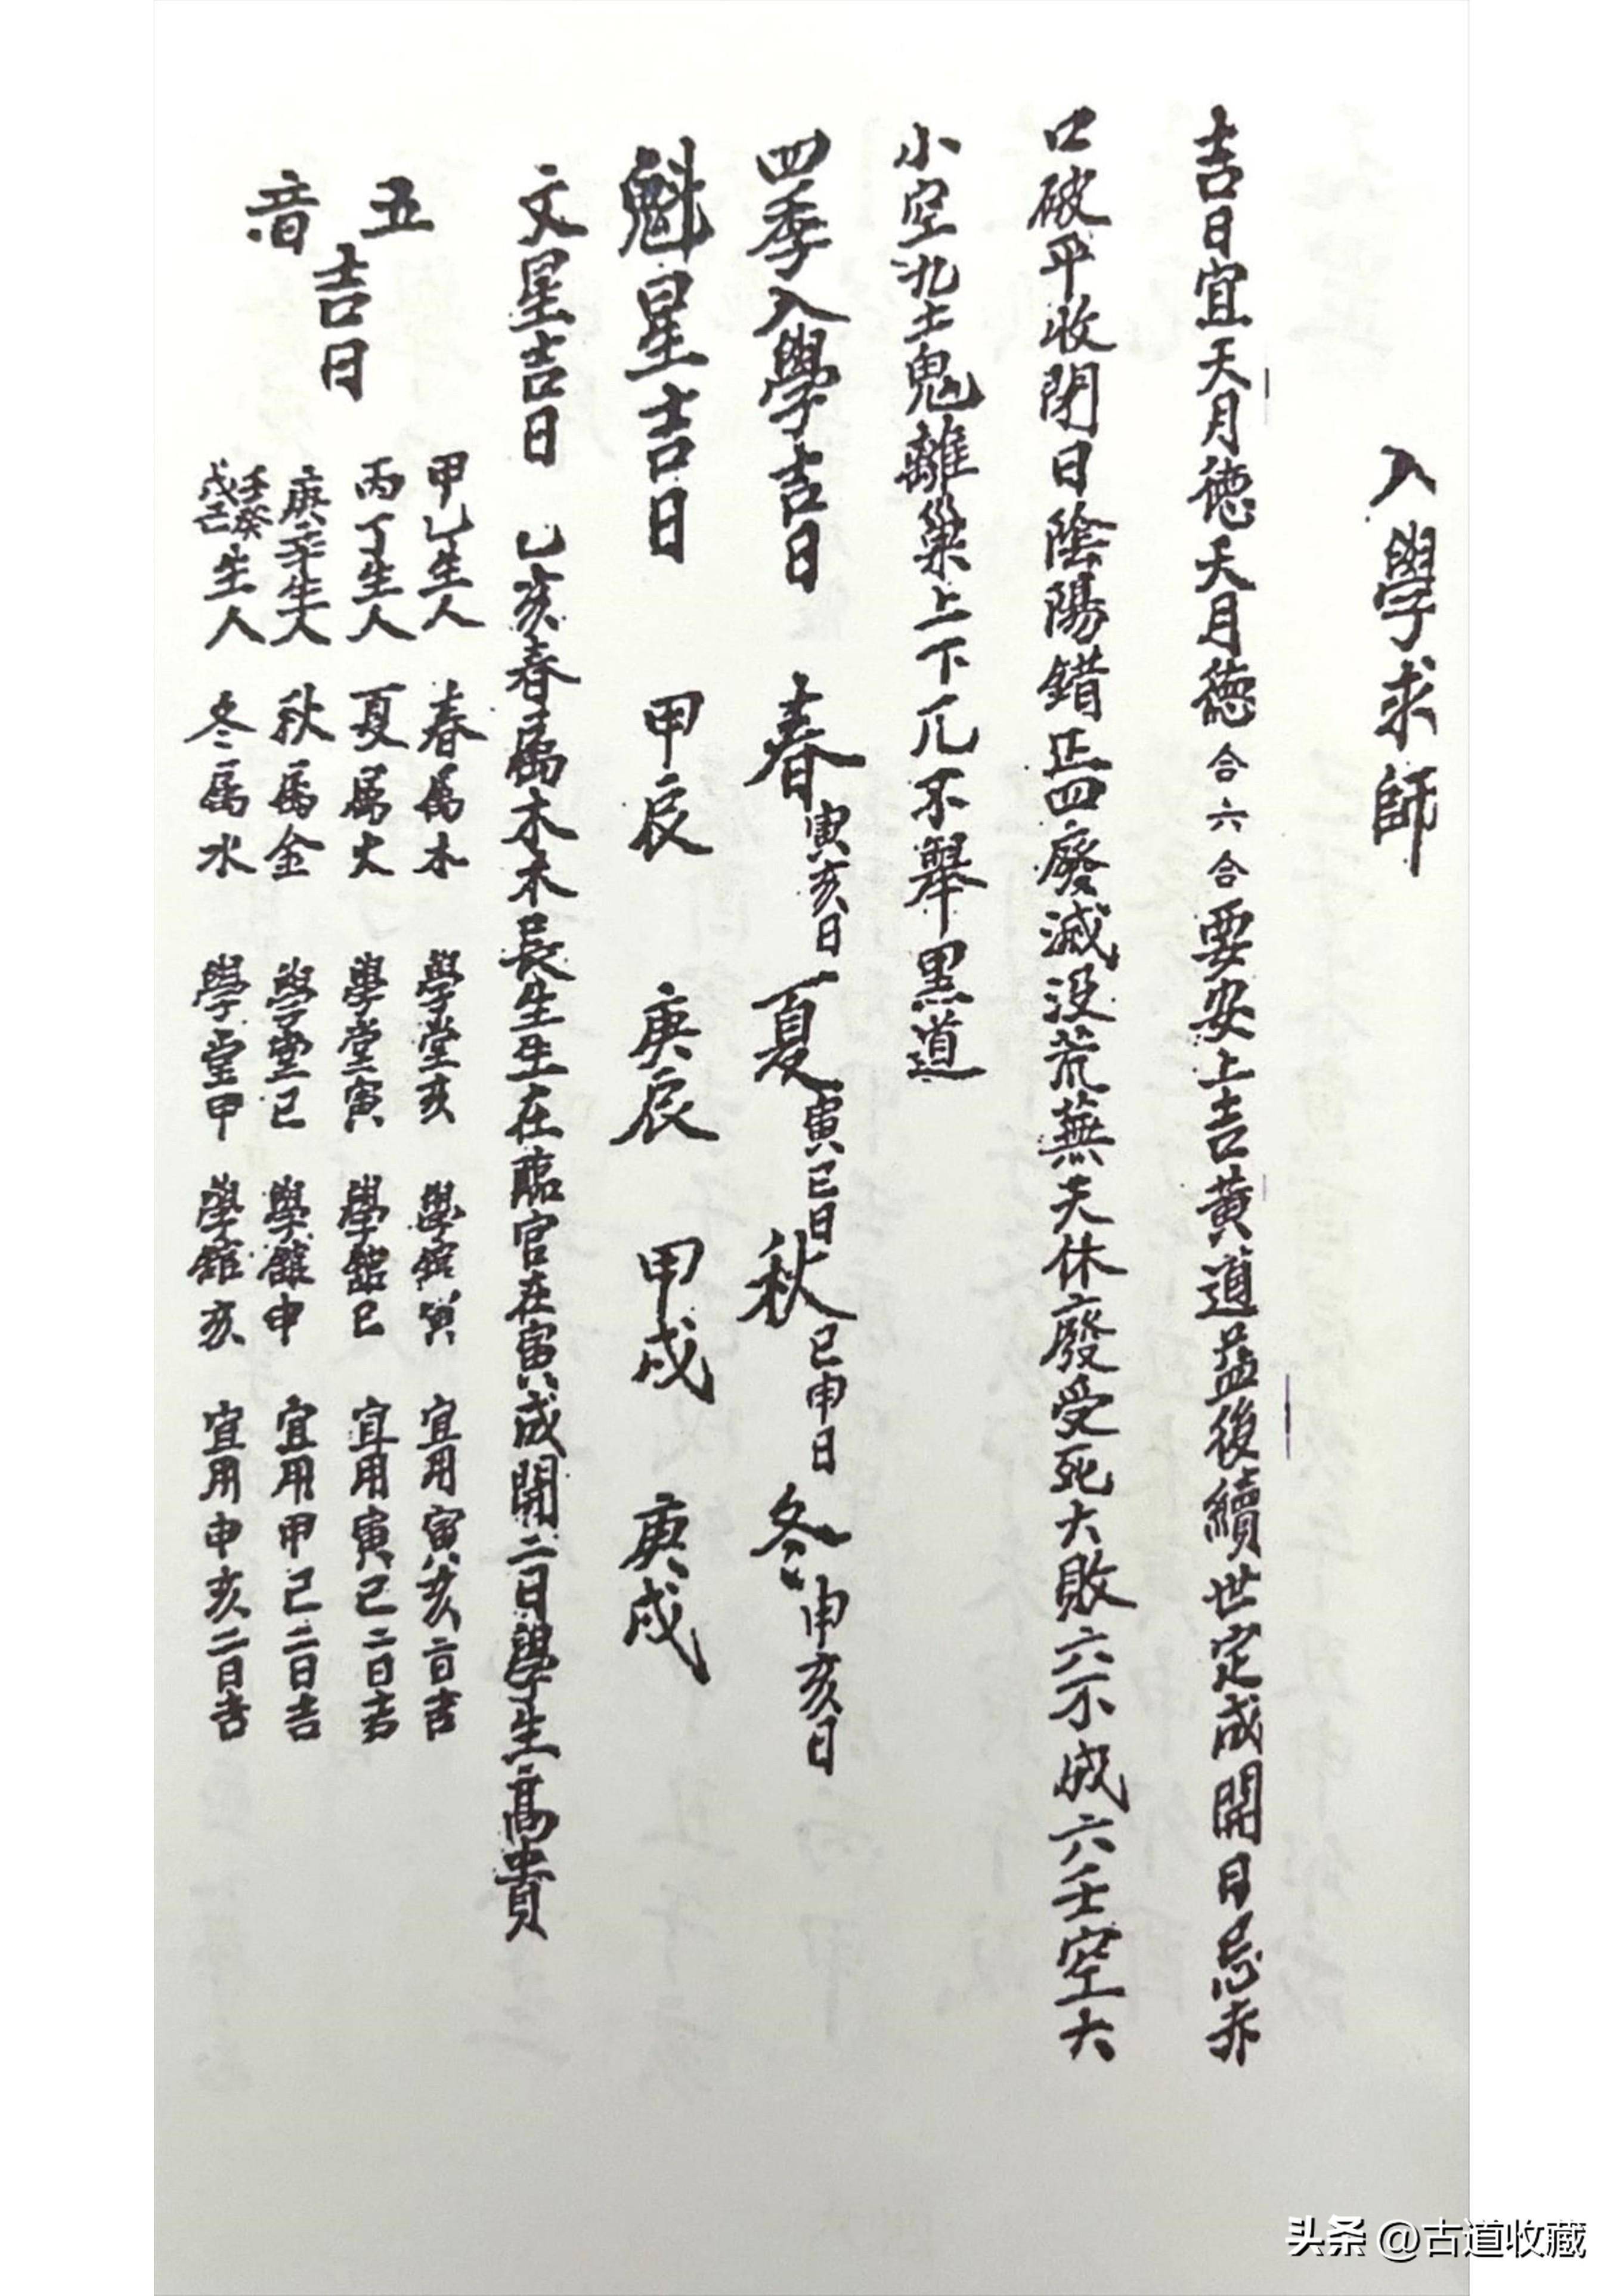 入學求師
吉日宜天月德天月德合六合要安上吉黃道益後續世定成開日忌赤
口破平收閉日陰陽錯正四廢滅没荒蕪天休廢受死大敗六不成六壬空大
小空九土鬼離巢上下兀不舉黑道
四季入學吉日 春寅亥日夏寅巳日秋巳申日冬申亥日
魁星吉日 甲辰 庚辰 甲戌 庚戌
文星吉日 乙亥春屬木木長生生在臨官在寅成開二日學生高貴
五音吉日
甲乙生人 春屬木 學堂亥 學舘寅 宜用寅亥二日吉
丙丁生人 夏屬火 學堂寅 學舘巳 宜用寅巳二日吉
庚辛生人 秋屬金 學堂巳 學舘申 宜用甲巳二日吉
壬癸戊己生人 冬屬水 學堂甲 學舘亥 宜用申亥二日吉
头条 @古道收藏